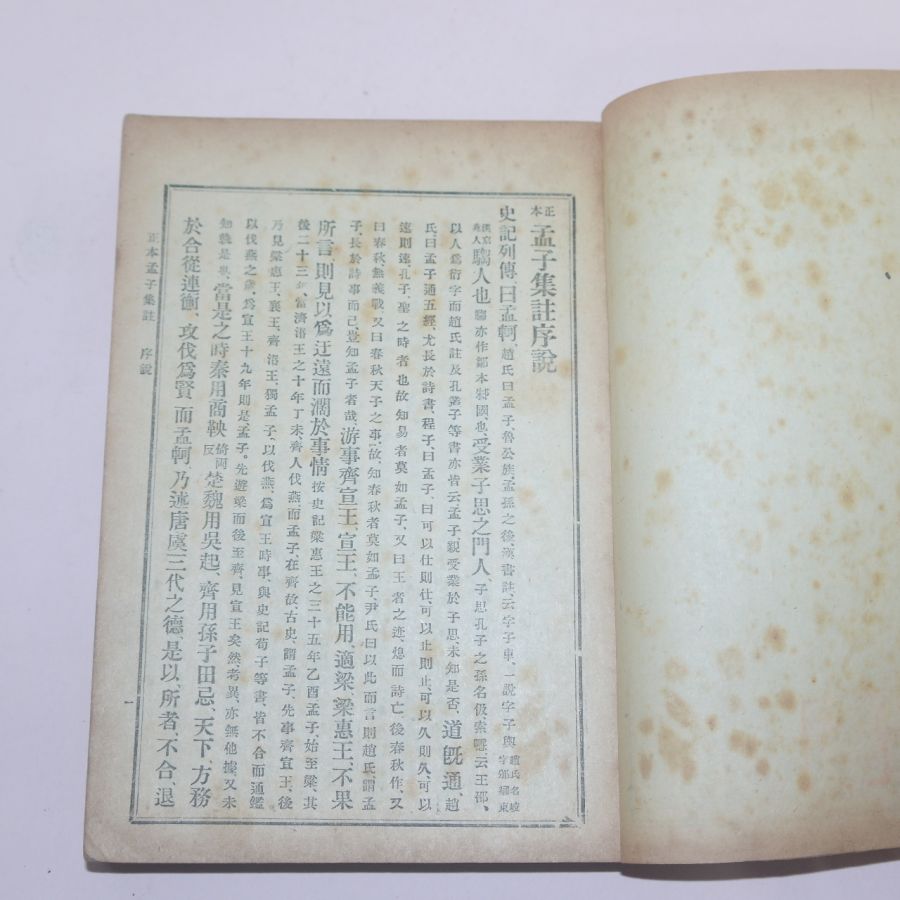 正本 孟子集註序說
史記列傳曰孟軻、趙氏曰孟子、魯公族孟孫之後、漢書註云、字子車、一說字子輿、趙氏名岐字邠卿東
漢京兆人騶人也、騶亦作鄒本邾國也、受業子思之門人、子思孔子之孫名伋索隱云王邵、
以人爲衍字而趙氏註及孔叢子等書亦皆云孟子親受業於子思、未知是否、道既通、趙
氏曰孟子通五經、尤長於詩書、程子曰孟子、曰可以仕則仕、可以止則止、可以久則久、可以
速則速、孔子、聖之時者也故知易者莫如孟子、又曰王者之迹息而詩亡後春秋作、又
曰春秋無義戰、又曰春秋天子之事、故、知春秋者莫如孟子尹氏曰以此而言則趙氏、謂孟
子、長於詩書而已、豈知孟子者哉、游事齊宣王、宣王、不能用、適梁、梁惠王、不果
所言、則見以爲迂遠而濶於事情按史記梁惠王之三十五年乙酉孟子、始至梁、其
後二十三年、當濟湣王之十年丁未、齊人伐燕而孟子、在齊故、古史、謂孟子、先事齊宣王、後
乃見梁惠王、襄王、齊湣王、獨孟子、以伐燕、爲宣王時事、與史記荀子等書、皆不合而通鑑
以伐燕之歲、爲宣王十九年則是孟子、先遊梁而後至齊、見宣王矣然、考異、亦無他據又未
知孰是也、當是之時秦用商鞅倚兩反楚魏用吳起、齊用孫子田忌、天下、方務
於合從連衡、攻伐爲賢、而孟軻、乃述唐虞三代之德、是以、所者、不合、退
正本孟子集註 序說
一